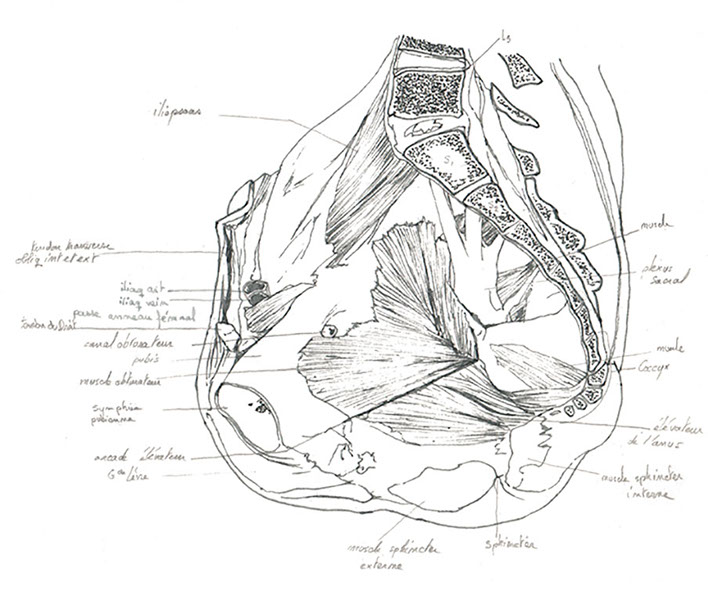 L5
iliopsoas
S1
muscle
plexus
sacral
tendon transverse
obliq int et ext
iliaq art
iliaq vein
passe anneau fémoral
canal obturateur
pubis
muscle obturateur
symphise
pubienne
muscle
Coccyx
élévateur
de l'anus
arcade élévateur
Gde lèvre
muscle sphincter
interne
muscle sphincter
externe
sphincter